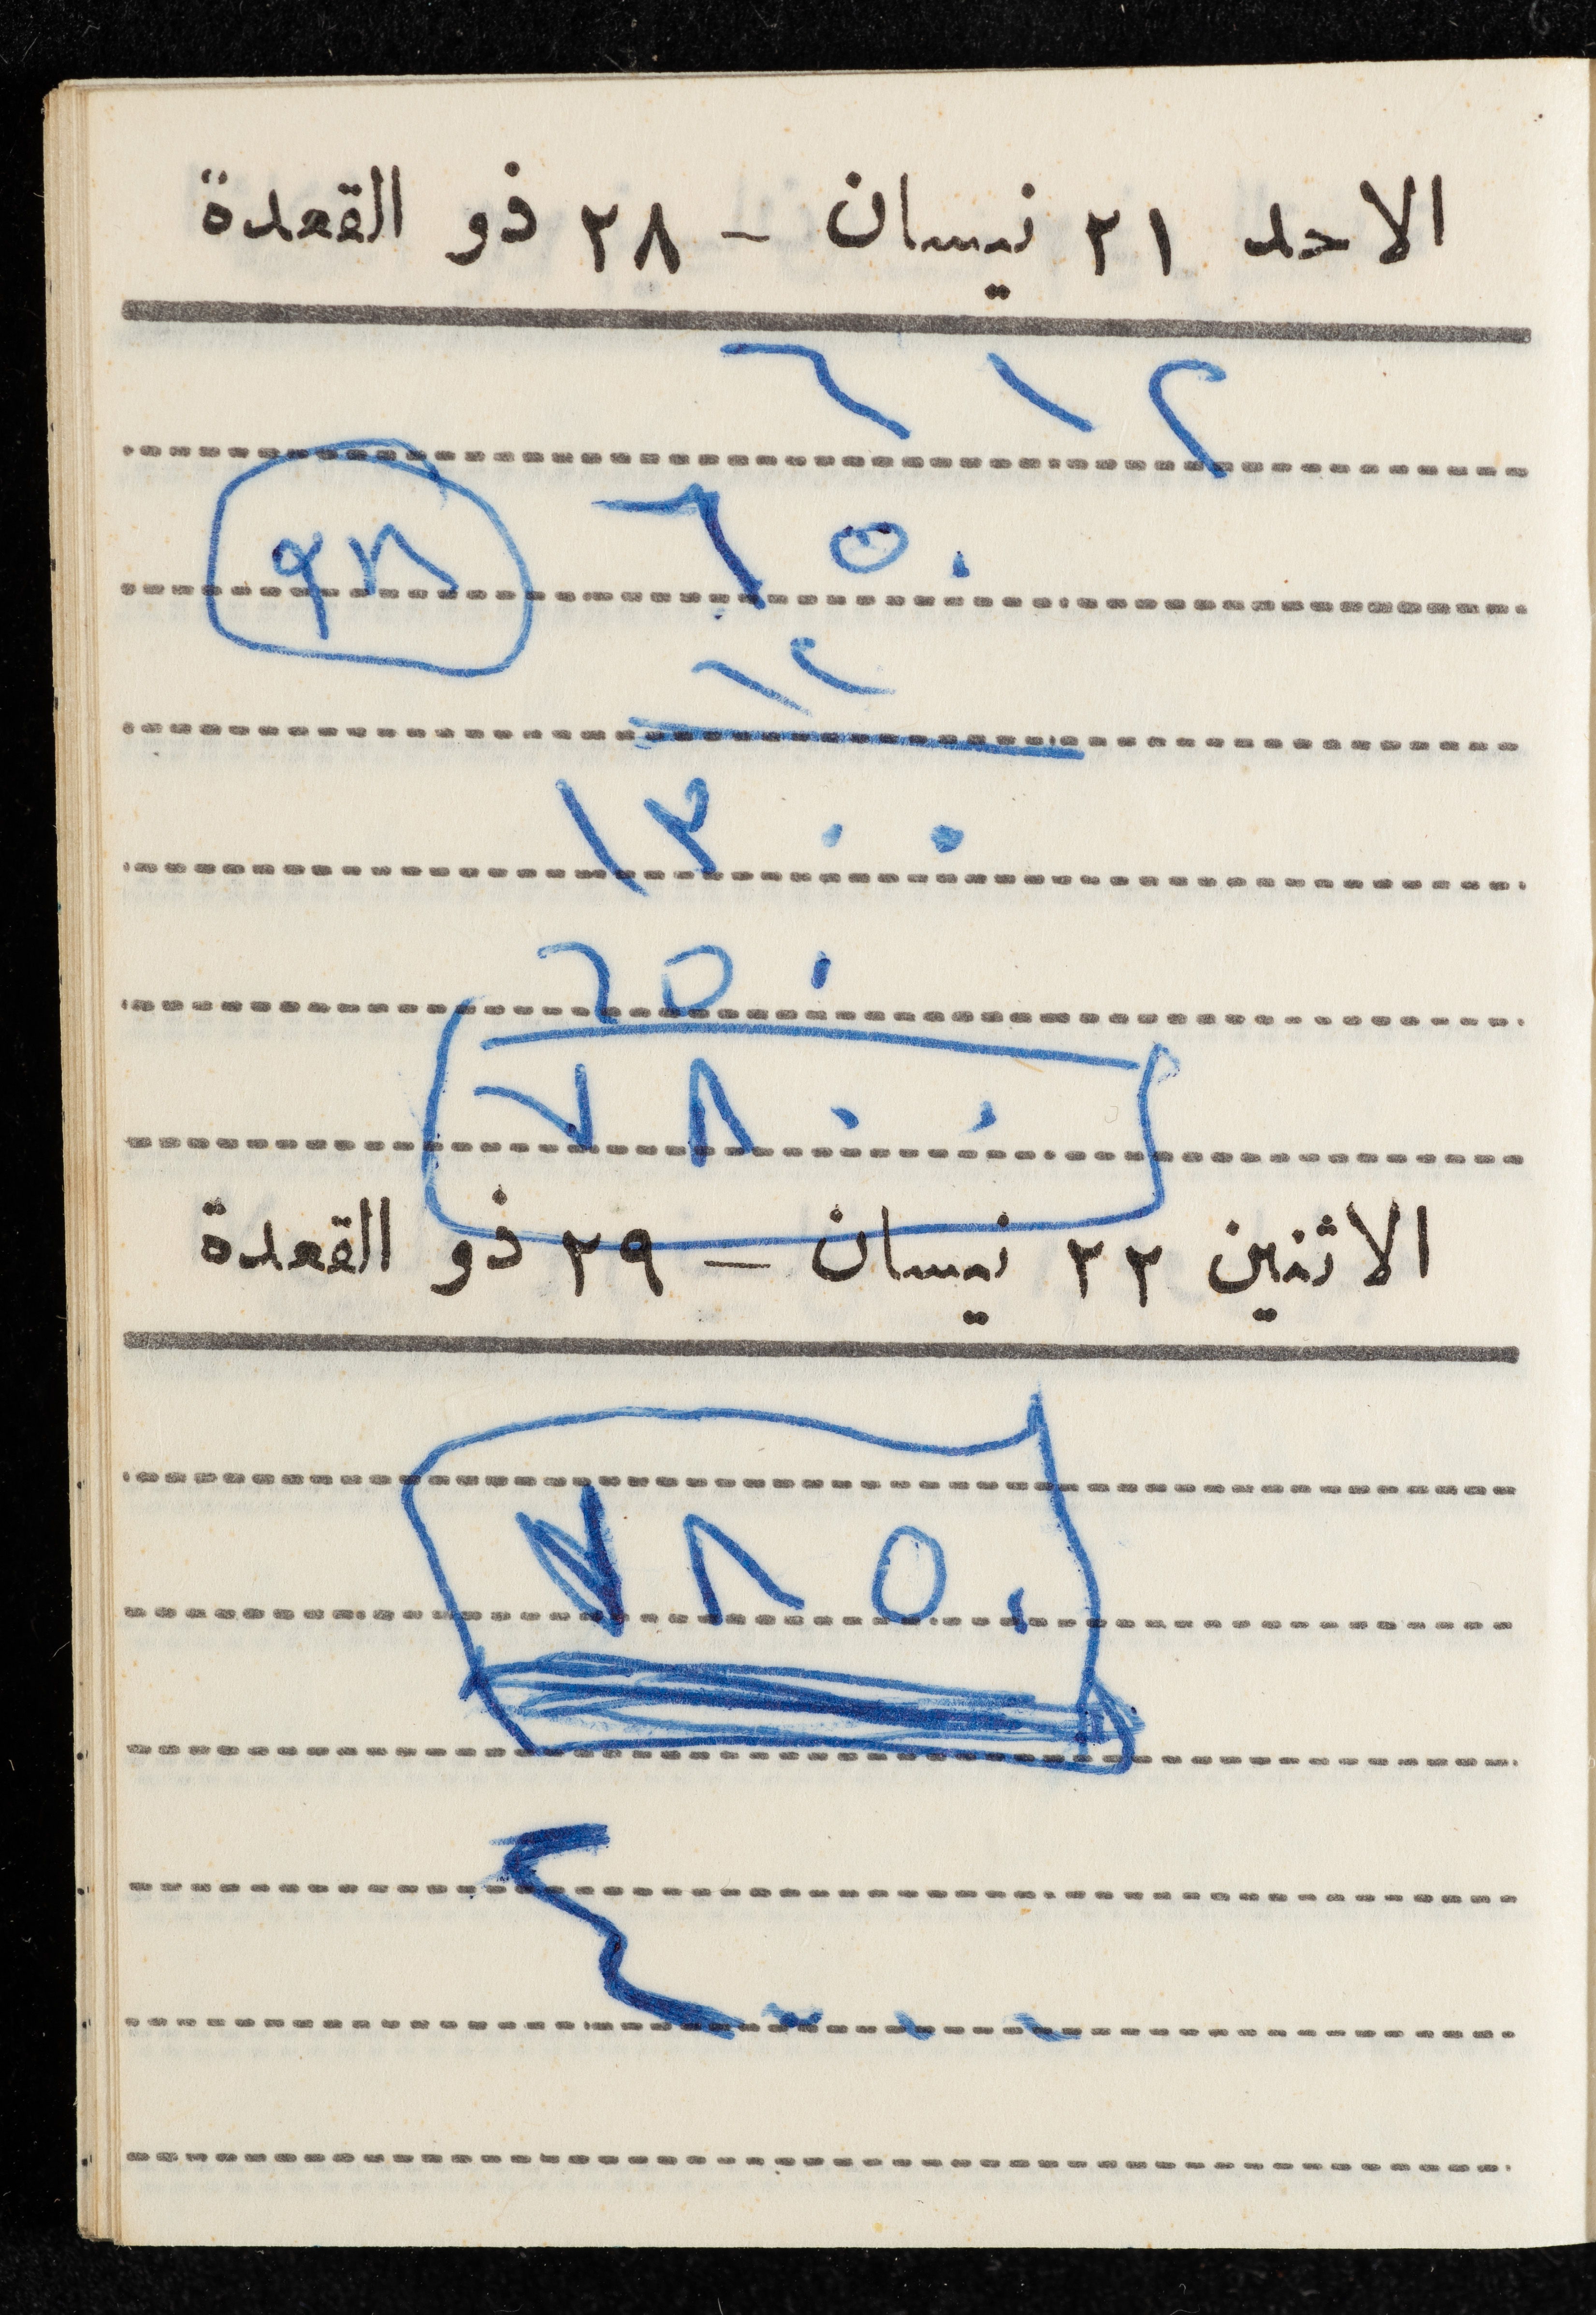 الاحد ٢١ نيسان - ٢٨ ذو القعدة
٦١٢
٦٥٠
٩٨
١٢
١٣٠٠
٦٥٠
٧٨٠٠
الاثنين ٢٢ نيسان - ٢٩ ذو القعدة
٧٨٥٠
٤٠٠٠